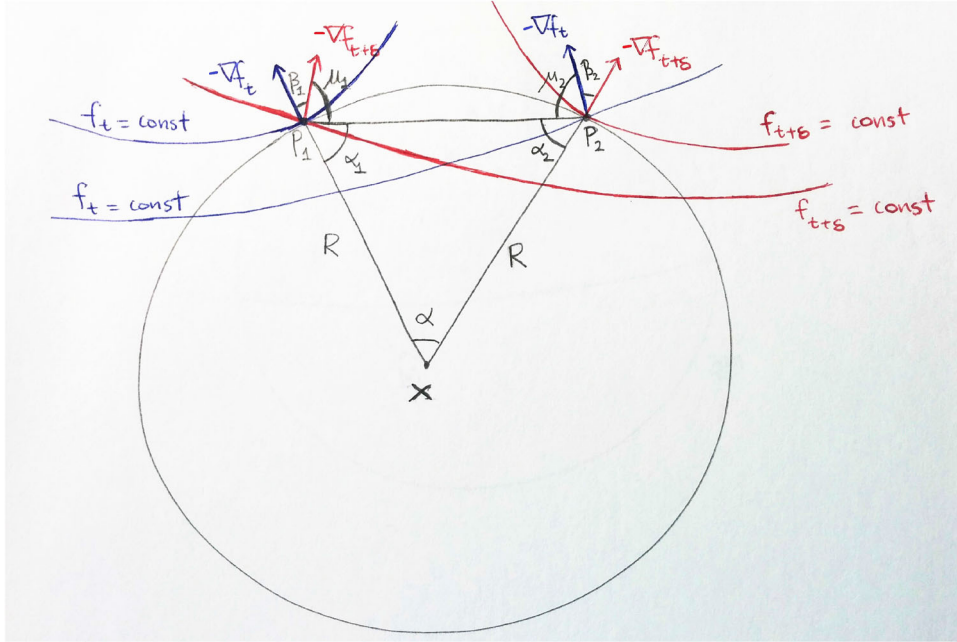 -∇f_t
β₁
-∇f_{t+δ}
μ₁
-∇f_t
β₂
-∇f_{t+δ}
μ₂
f_t = const
P₁
α₁
α₂
P₂
f_{t+δ} = const
f_t = const
f_{t+δ} = const
R
R
α
X